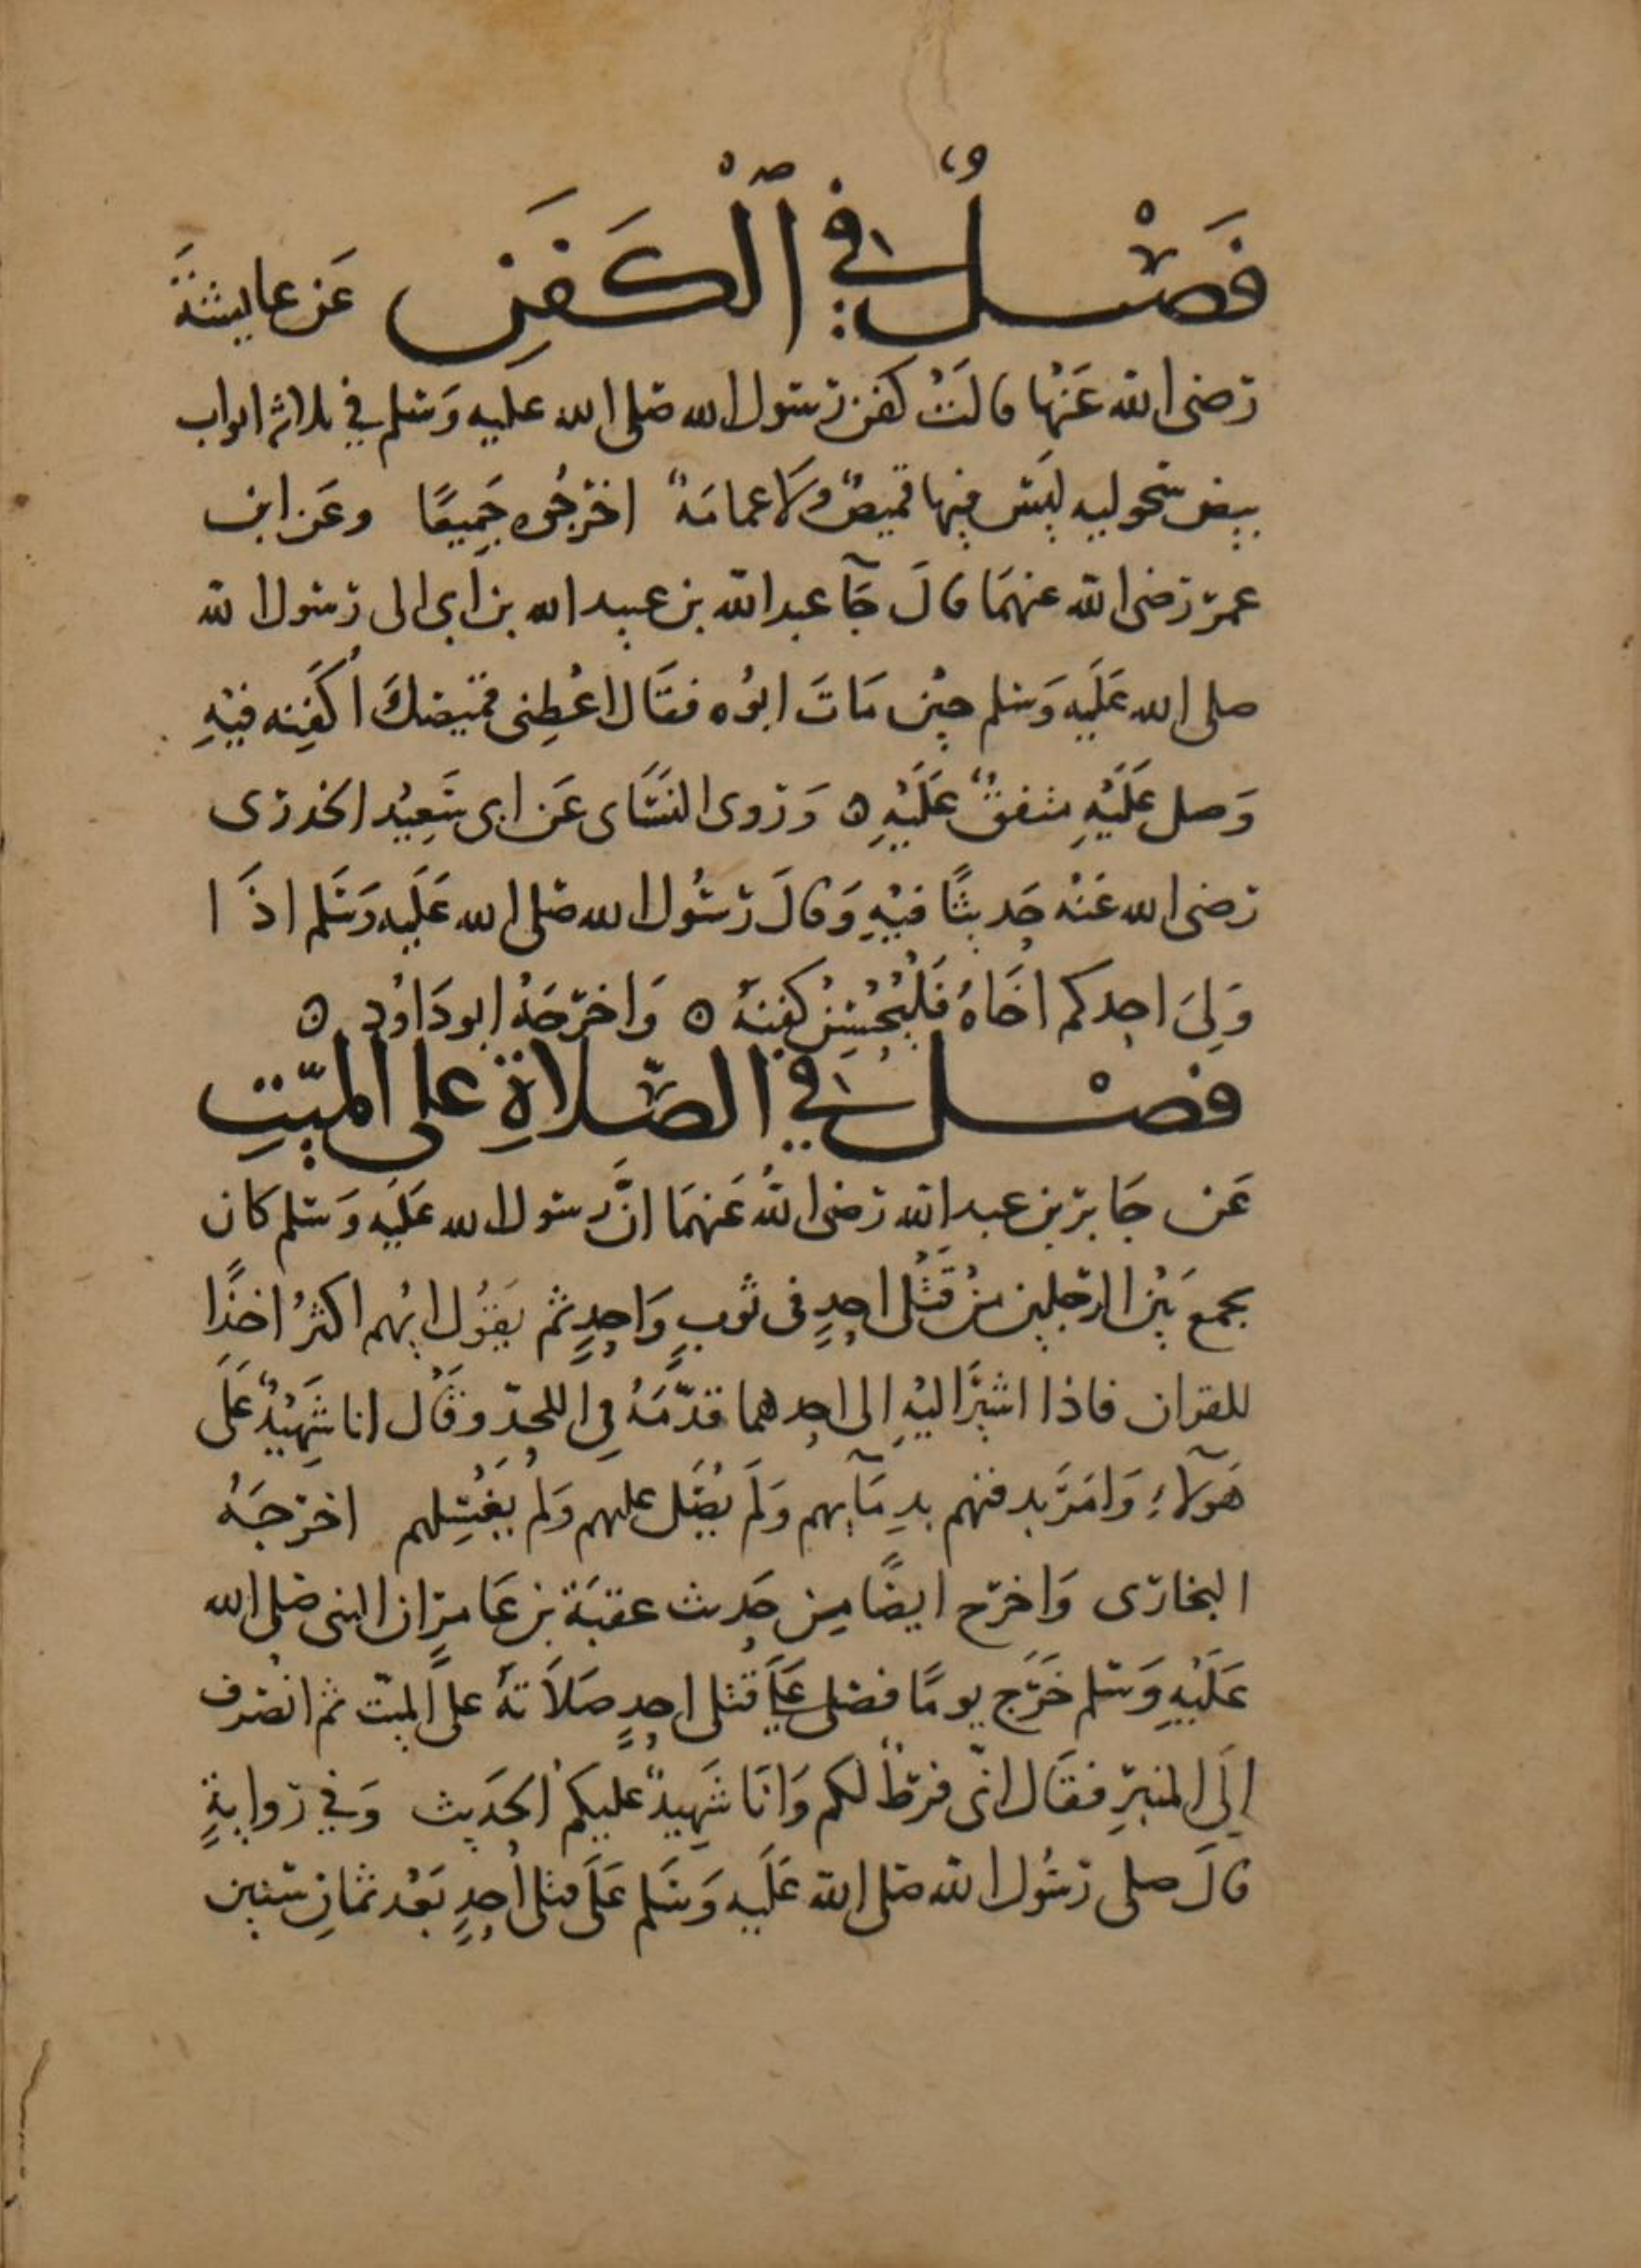 فَصْلٌ في ٱلْكَفَنِ عَن عايشَةَ
رضى الله عَنْها قالَتْ كفن رسول الله صلى الله عليه وَسلم في ثلاثة اثواب
بيض سحوليه ليَس فيها قميصٌ وَلَا عمامَةٌ اخرجُوه جَمِيعًا وعَن ابن
عمر رَضى الله عنهمَا قالَ جَآ عبد الله بن عبيد الله بن ابي الى رَسُول الله
صلى الله عَلَيه وَسلم حِيْن مَاتَ ابوُه فقَال اعْطِنى قميصَك أكَفِنه فيْهِ
وَصل عَلَيْهِ متفقٌ عَلَيْهِ ه وَرَوى النسَاى عَن ابى سَعِيْد الخدرى
رَضى الله عَنْه حَديثًا فيْهِ وَقالَ رسُول الله صَلى الله عَلَيه وَسَلم اذَا
وَلِىَ احدكم اخَاهُ فَلْيُحْسِنْ كفنهُ ه وَاخرَجَهُ ابو دَاوُد ه
فصْل في الصّلاةِ على الميّتِ
عَن جَابر بن عبد الله رَضى اللهُ عَنهمَا انَّ رسول الله عَلَيه وَسَلم كان
يجمع بَيْن الرجلين منْ قَتْلى احدٍ فى ثوبٍ وَاحدٍ ثم يقوُل ايهُم اكثرُ اخذًا
للقران فاذا اشيرَ اليْهِ الى احدهما قدّمَهُ في اللحد وقَال انا شَهِيْدٌ عَلَى
هَولآءِ وَامَرَ بدفنهم بدِمَآيهم وَلَم يُصَل عليهم وَلَمْ يغْسِلهم اخرجَهُ
البخارى وَاخرج ايضًا مِن حَديث عقبَة بن عَامر ان النبى صَلى الله
عَلَيْهِ وَسَلم خَرَج يومًا فصَلى عَلَى قتْلى احدٍ صَلَاتهُ على الميت ثم انصَرف
اِلَى المنبر فقَال انّى فرَطٌ لكم وَانَا شَهِيدٌ عليكم الحَديث وَفي رَوايةٍ
قالَ صلى رَسُول الله صَلى الله عَلَيه وَسَلم عَلَى قتلى اُحدٍ بَعْد ثمَانِ سنين